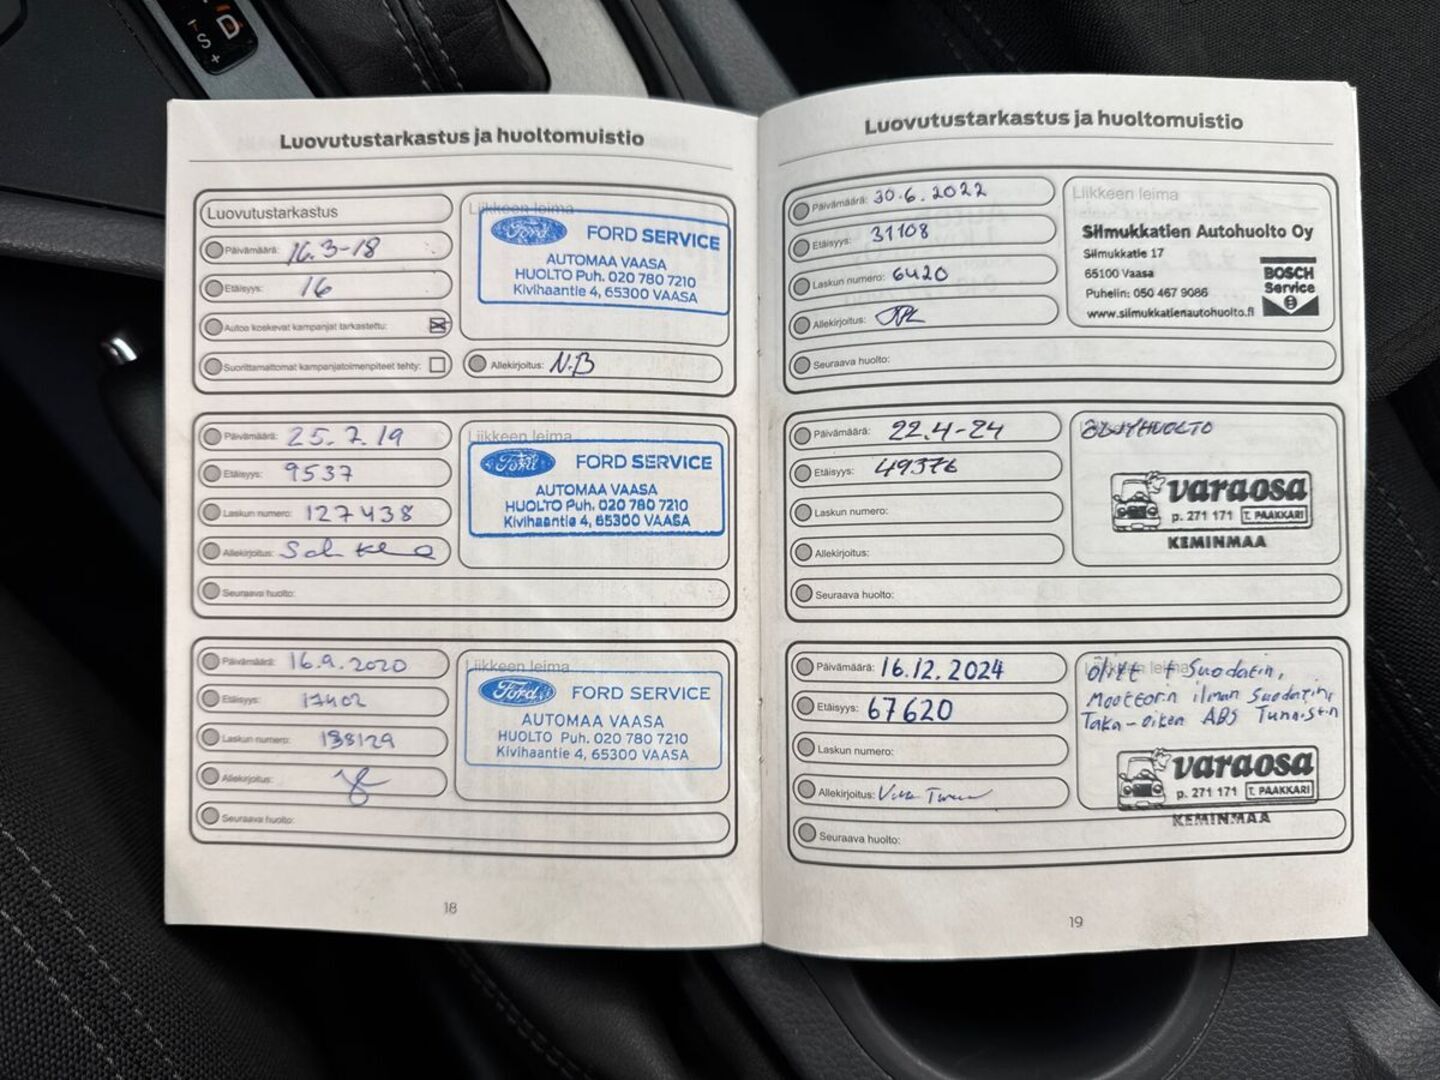 D
S
+
Luovutustarkastus ja huoltomuistio
Luovutustarkastus
Päivämäärä: 16.3-18
Etäisyys: 16
Autoa koskevat kampanjat tarkastettu:
Suorittamattomat kampanjatoimenpiteet tehty:
Liikkeen leima
Ford FORD SERVICE
AUTOMAA VAASA
HUOLTO Puh. 020 780 7210
Kivihaantie 4, 65300 VAASA
Allekirjoitus: N.B
Päivämäärä: 25.7.19
Etäisyys: 9537
Laskun numero: 127438
Allekirjoitus:
Seuraava huolto:
Liikkeen leima
Ford FORD SERVICE
AUTOMAA VAASA
HUOLTO Puh. 020 780 7210
Kivihaantie 4, 65300 VAASA
Päivämäärä: 16.9.2020
Etäisyys: 17402
Laskun numero: 138129
Allekirjoitus:
Seuraava huolto:
Liikkeen leima
Ford FORD SERVICE
AUTOMAA VAASA
HUOLTO Puh. 020 780 7210
Kivihaantie 4, 65300 VAASA
18
Luovutustarkastus ja huoltomuistio
Päivämäärä: 30.6.2022
Etäisyys: 31108
Laskun numero: 6420
Allekirjoitus:
Seuraava huolto:
Liikkeen leima
Silmukkatien Autohuolto Oy
Silmukkatie 17
65100 Vaasa
Puhelin: 050 467 9086
www.silmukkatienautohuolto.fi
BOSCH
Service
Päivämäärä: 22.4-24
Etäisyys: 49376
Laskun numero:
Allekirjoitus:
Seuraava huolto:
ÖLJYHUOLTO
varaosa
p. 271 171 T. PAAKKARI
KEMINMAA
Päivämäärä: 16.12.2024
Etäisyys: 67620
Laskun numero:
Allekirjoitus:
Seuraava huolto:
Liikkeen leima
Öljyt + Suodatin,
Moottorin ilman Suodatin,
Taka-oikea ABS Tunnistin
varaosa
p. 271 171 T. PAAKKARI
KEMINMAA
19